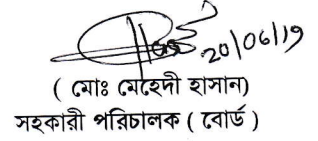 20/06/19
( মোঃ মেহেদী হাসান)
সহকারী পরিচালক ( বোর্ড )